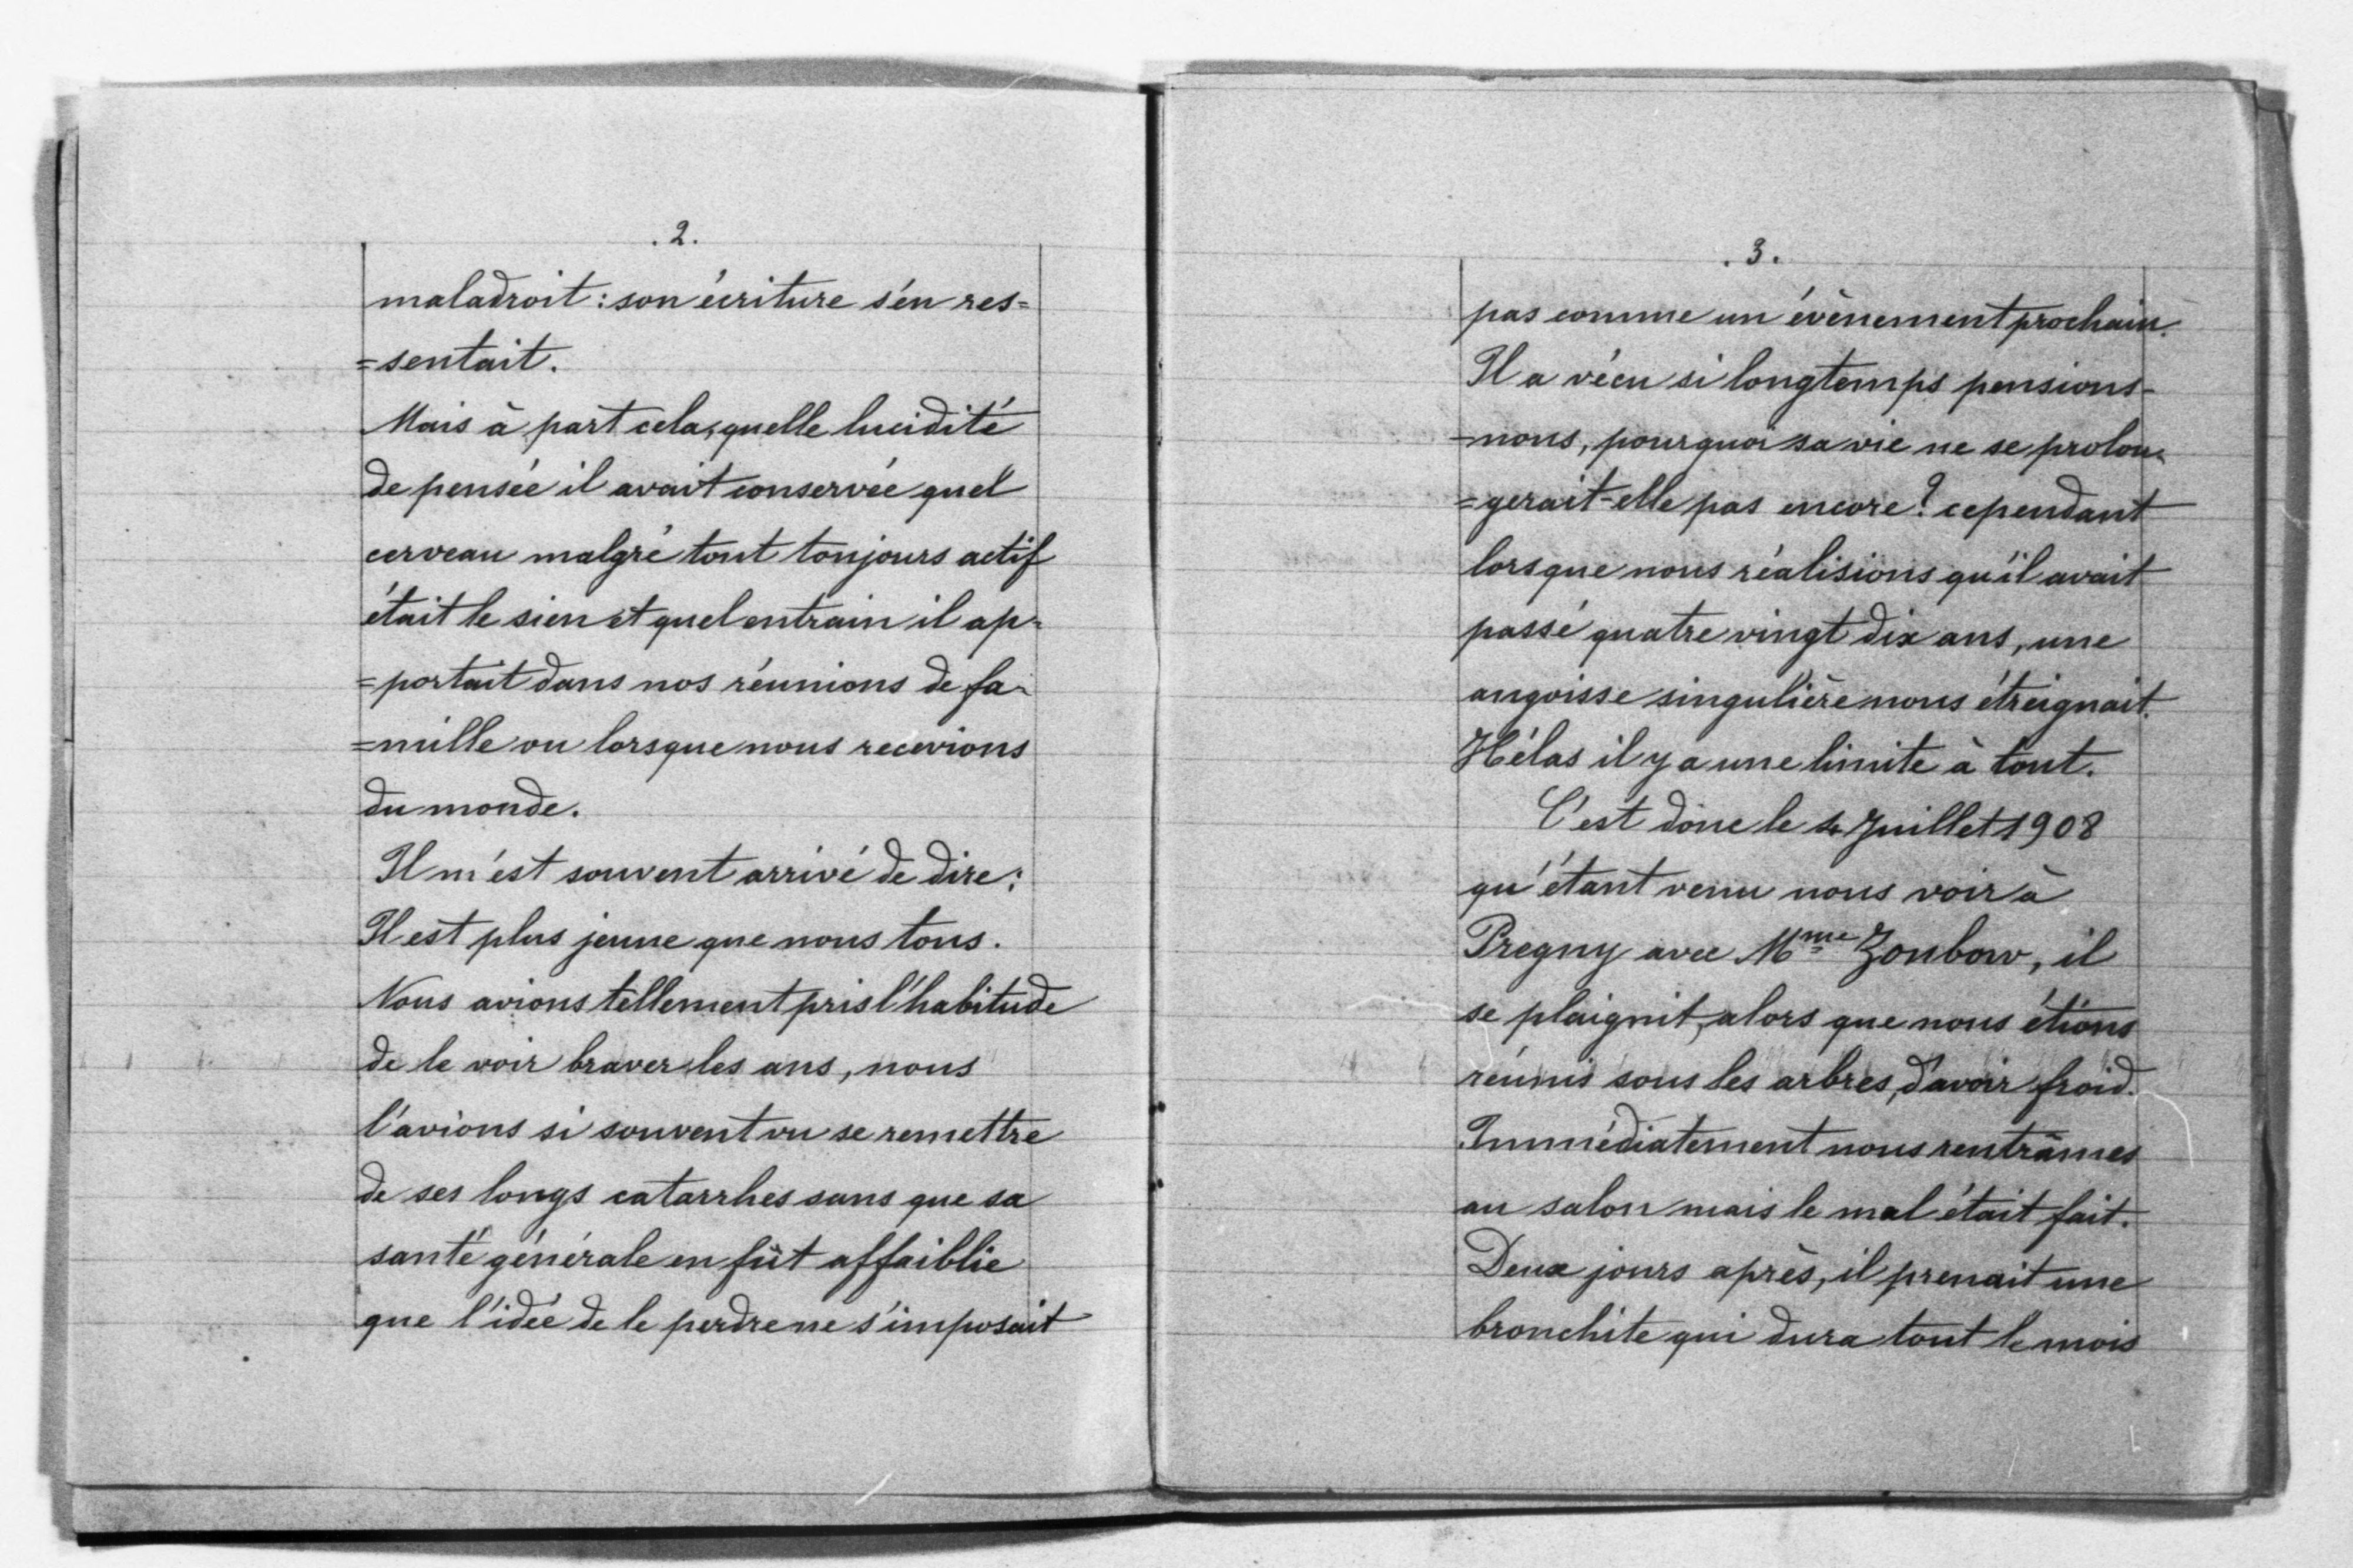 .2.
maladroit : son écriture s'en res=
=sentait.
Mais à part cela, quelle lucidité
de pensée il avait conservée quel
cerveau malgré tout toujours actif
était le sien et quel entrain il ap=
=portait dans nos réunions de fa=
=mille ou lorsque nous recevions
du monde.
Il m'est souvent arrivé de dire :
Il est plus jeune que nous tous.
Nous avions tellement pris l'habitude
de le voir braver les ans, nous
l'avions si souvent vu se remettre
de ses longs catarrhes sans que sa
santé générale en fût affaiblie
que l'idée de le perdre ne s'imposait
.3.
pas comme un évènement prochain.
Il a vécu si longtemps pensions-
-nous, pourquoi sa vie ne se prolon=
=gerait-elle pas encore ? cependant
lorsque nous réalisions qu'il avait
passé quatre vingt dix ans, une
angoisse singulière nous étreignait.
Hélas il y a une limite à tout.
C'est donc le 4 Juillet 1908
qu'étant venu nous voir à
Pregny avec Mme Zoubow, il
se plaignit, alors que nous étions
réunis sous les arbres, d'avoir froid.
Immédiatement nous rentrâmes
au salon mais le mal était fait.
Deux jours après, il prenait une
bronchite qui dura tout le mois